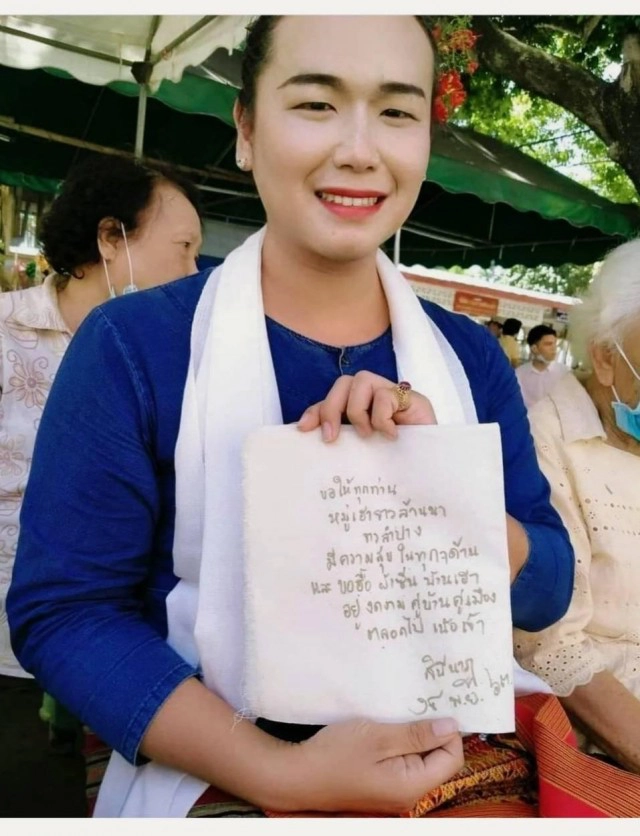 ขอให้ทุกท่าน
หมู่เฮาชาวล้านนา
ชาวลำปาง
มีความสุข ในทุกๆด้าน
และ ขอซื้อ ผ้าซิ่น บ้านเฮา
อยู่ งดงาม คู่บ้าน คู่เมือง
ตลอดไป เน้อเจ้า
สิรีนาฏ
พ.ย.